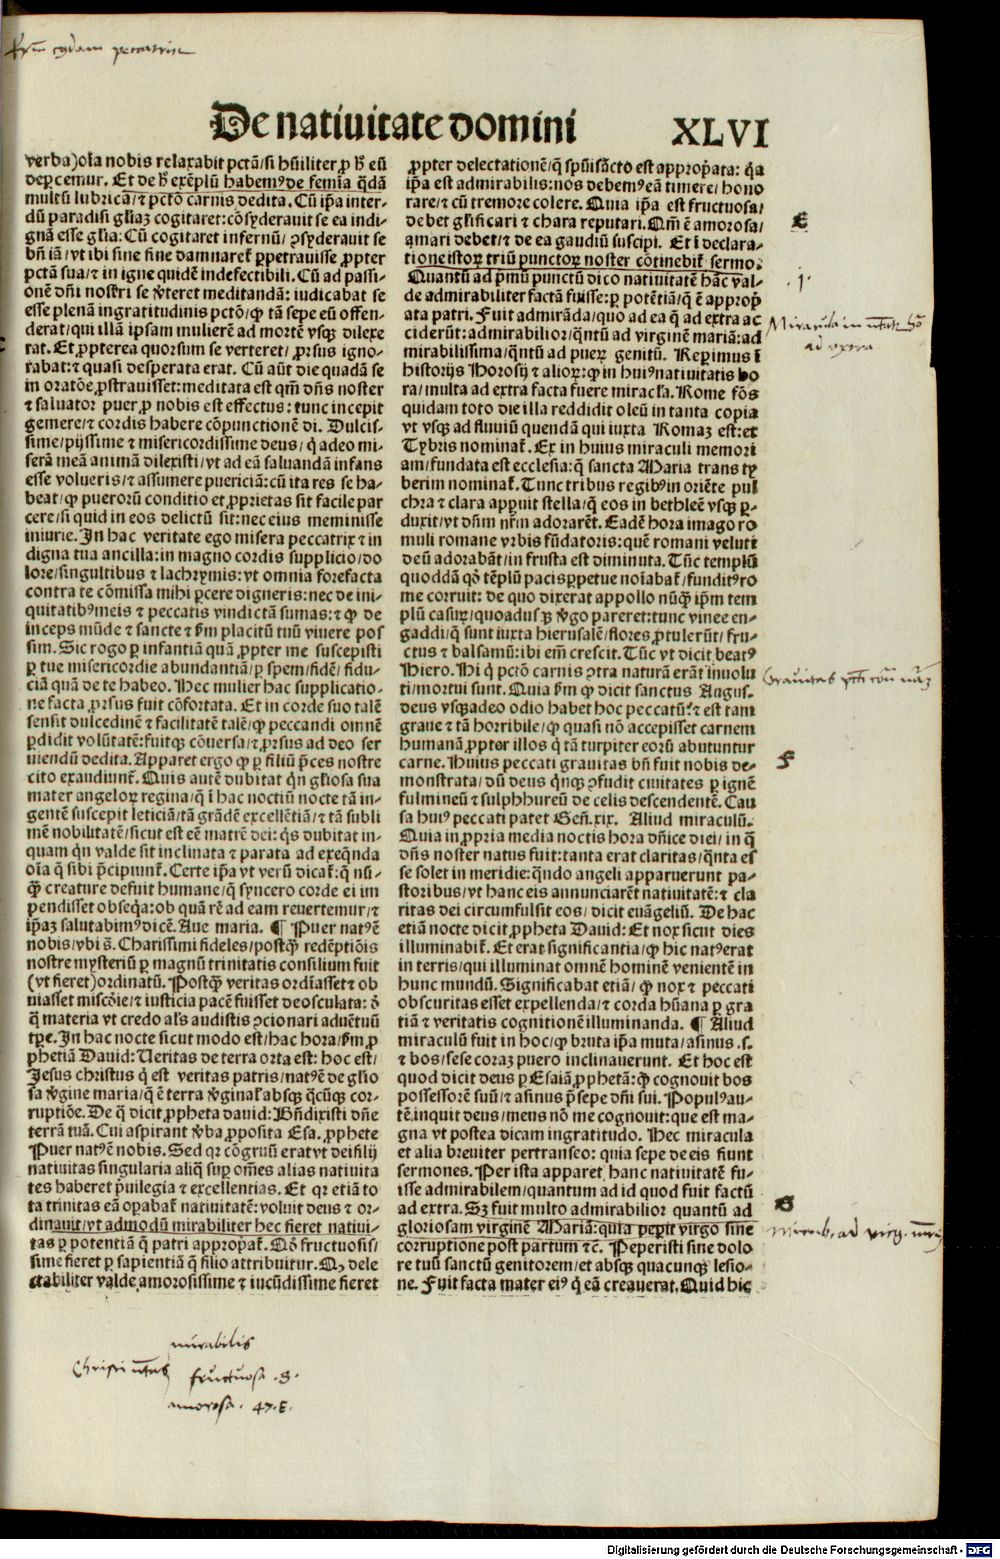 De natiuitate domini XLVI
verba)oīa nobis relaxabit pctā/si hūiliter ꝓ hꝰ eū
deꝑcemur. Et de hꝰ exēplū habemꝰ de femīa q̄dā
multū lubrica/⁊ pctō carnis dedita. Cū ip̄a inter⸗
dū paradisi gl̄iaꝫ cogitaret: cōsyderauit se ea indi⸗
gnā esse gl̄ia: Cū cogitaret infernū/ ꝯsyderauit se
bn̄ iā/vt ibi sine fine damnaret᷑ ꝑpetrauisse ꝓpter
pctā sua/⁊ in igne quidē indefectibili. Cū ad passi⸗
onē dn̄i nostri se v̄teret meditandā: iudicabat se
esse plenā ingratitudinis pctō/ꝙ tā sepe eū offen⸗
derat/qui illā ipsam mulierē ad mortē vsqꝫ dilexe
rat. Et ꝓpterea quorsum se verteret/ ꝓrsus igno⸗
rabat: ⁊ quasi desperata erat. Cū aūt die quadā se
in oratōe ꝓstrauisset: meditata est qm̄ dn̄s noster
⁊ saluator puer ꝓ nobis est effectus: tunc incepit
gemere/⁊ cordis habere cōpunctionē di. Dulcis⸗
sime/pijssime ⁊ misericordissime deus/ q̇ adeo mi⸗
serā meā animā dilexisti/vt ad eā saluandā infans
esse volueris/⁊ assumere puericiā: cū ita res se ha⸗
beat/ꝙ puerorū conditio et ꝓprietas sit facile par
cere/si quid in eos delictū sit: nec eius meminisse
iniurie. In hac veritate ego misera peccatrix ⁊ in
digna tua ancilla: in magno cordis supplicio/do
lore/singultibus ⁊ lachrymis: vt omnia forefacta
contra te cōmissa mihi ꝑcere digneris: nec de ini⸗
quitatibꝰ meis ⁊ peccatis vindictā sumas: ⁊ ꝙ de
inceps mūde ⁊ sancte ⁊ ẜm placitū tuū viuere pos
sim. Sic rogo ꝑ infantiā quā ꝓpter me suscepisti
ꝑ tue misericordie abundantiā/ꝑ spem/fidē/ fidu⸗
ciā quā de te habeo. Hec mulier hac supplicatio⸗
ne facta ꝓrsus fuit cōfortata. Et in corde suo talē
sensit dulcedinē ⁊ facilitatē talē/ꝙ peccandi omnē
ꝑdidit volūtatē: fuitqꝫ cōuersa/⁊ ꝓrsus ad deo ser
uiendū dedita. Apparet ergo ꝙ ꝑ filiū p̄ces nostre
cito exaudiunt᷑. Quis autē dubitat qn̄ gl̄iosa sua
mater angeloꝝ regina/q̄ ī hac noctiū nocte tā in⸗
gentē suscepit leticiā/tā grādē excellētiā/⁊ tā subli
mē nobilitatē/sicut est eē matrē dei: q̇s dubitat in⸗
quam qn̄ valde sit inclinata ⁊ parata ad exeq̄nda
oīa q̄ sibi p̄cipiunt᷑. Certe ip̄a vt verū dicat᷑: q̄ nū⸗
ꝙ̄ creature defuit humane/q̄ syncero corde ei im
pendisset obseq̇a: ob quā rē ad eam reuertemur/⁊
ip̄aꝫ salutabimꝰ dicē. Aue maria. ¶ Puer natꝰ ē
nobis/vbi s̄. Charissimi fideles/postꝙ̄ redēptiōis
nostre mysteriū ꝑ magnū trinitatis consilium fuit
(vt fieret)ordinatū. Postꝙ̄ veritas ordīasset ⁊ ob
uiasset misc̄ōie/⁊ iusticia pacē fuisset deosculata: d̄
q̄ materia vt credo al̓s audistis ꝯcionari aduētuū
tꝑe. In hac nocte sicut modo est/hac hora/ẜm ꝓ
phetiā Dauid: Ueritas de terra orta est: hoc est/
Jesus christus q̇ est veritas patris/natꝰ ē de glio
sa v̄gine maria/q̄ ē terra v̄ginal̓ absqꝫ q̄cūqꝫ cor⸗
ruptiōe. De q̄ dicit ꝓpheta dauid: Bn̄dixisti dn̄e
terrā tuā. Cui aspirant v̄ba ꝓposita Esa. ꝓphete
Puer natꝰ ē nobis. Sed qꝛ cōgruū erat vt deifilij
natiuitas singularia aliq̄ suꝑ om̄es alias natiuita
tes haberet p̄uilegia ⁊ excellentias. Et qꝛ etiā to
ta trinitas eā opabat᷑ natiuitatē: voluit deus ⁊ or⸗
dinauit/vt admodū mirabiliter hec fieret natiui⸗
tas ꝑ potentiā q̄ patri appropat᷑. Qd̄ fructuosis/
sime fieret ꝑ sapientiā q̄ filio attribuitur. Qꝫ dele
ctabiliter valde amorosissime ⁊ iucūdissime fieret
ꝓpter delectationē/q̄ spūisācto est appropata: q̄a
ip̄a est admirabilis: nos debemꝰ eā timere/hono
rare/⁊ cū tremore colere. Quia ip̄a est fructuosa/
debet glificari ⁊ chara reputari. Qm̄ ē amorosa/
amari debet/⁊ de ea gaudiū suscipi. Et ī declara⸗
tione istoꝝ triū punctoꝝ noster cōtinebit᷑ sermo.
Quantū ad p̄mū punctū dico natiuitatē hāc val⸗
de admirabiliter factā fuisse: ꝑ potētiā/q̄ ē approp
ata patri. Fuit admirāda/quo ad ea q̄ ad extra ac
ciderūt: admirabilior/q̄ntū ad virginē mariā: ad
mirabilissima/q̄ntū ad pueꝝ genitū. Reperimus ī
historijs Horosij ⁊ alioꝝ: ꝙ in huiꝰ natiuitatis ho
ra/multa ad extra facta fuere miracl̓a. Rome fōs
quidam toto die illa reddidit oleū in tanta copia
vt vsqꝫ ad fluuiū quendā qui iuxta Romaꝫ est: et
Tybris nominat᷑. Ex in huius miraculi memori
am/fundata est ecclesia: q̄ sancta Maria trans ty
berim nominat᷑. Tunc tribus regibꝰ in oriēte pul
chra ⁊ clara appuit stella/q̄ eos in bethleē vsqꝫ ꝑ⸗
duxit/vt dn̄m nr̄m adorarēt. Eadē hora imago ro
muli romane vrbis fūdatoris: quē romani veluti
deū adorabāt/in frusta est diminuta. Tūc templū
quoddā qd̄ tēplū pacis ꝑpetue noīabat᷑/funditꝰ ro
me corruit: de quo dixerat appollo nūꝙ̄ ip̄m tem
plū casuꝝ/quoadusqꝫ v̄go pareret: tunc vinee en⸗
gaddi/q̄ sunt iuxta hierusalē/flores ꝓtulerūt/ fru⸗
ctus ⁊ balsamū: ibi em̄ crescit. Tūc vt dicit beatꝰ
Hiero. Hi q̇ pctō carnis ꝯtra naturā erāt inuolu
ti/mortui sunt. Quia ẜm ꝙ dicit sanctus Augus.
deus vsqꝫadeo odio habet hoc peccatū: ⁊ est tam
graue ⁊ tā horribile/ꝙ quasi nō accepisset carnem
humanā ꝓpter illos q̇ tā turpiter eorū abutuntur
carne. Huius peccati grauitas bn̄ fuit nobis de⸗
monstrata/dū deus q̇nqꝫ ꝯfudit ciuitates ꝑ ignē
fulmineū ⁊ sulphhureū de celis descendentē. Cau
sa huiꝰ peccati patet Gen̄.xix. Aliud miraculū.
Quia in ꝓpria media noctis hora dn̄ice diei/in q̄
dn̄s noster natus fuit: tanta erat claritas/q̄nta es
se solet in meridie: q̄ndo angeli apparuerunt pa⸗
storibus/vt hanc eis annunciarēt natiuitatē: ⁊ cla
ritas dei circumfulsit eos/dicit euāgeliū. De hac
etiā nocte dicit ꝓpheta Dauid: Et nox sicut dies
illuminabit᷑. Et erat significantia/ꝙ hic natꝰ erat
in terris/qui illuminat omnē hominē venientē in
hunc mundū. Significabat etiā/ꝙ nox ⁊ peccati
obscuritas esset expellenda/⁊ corda hūana ꝑ gra
tiā ⁊ veritatis cognitionē illuminanda. ¶ Aliud
miraculū fuit in hoc/ꝙ bruta ip̄a muta/asinus .s.
⁊ bos/sese coraꝫ puero inclinauerunt. Et hoc est
quod dicit deus ꝑ Esaiā ꝓphetā: ꝙ cognouit bos
possessorē suū/⁊ asinus p̄sepe dn̄i sui. Populꝰ au⸗
tē inquit deus/meus nō me cognouit: que est ma⸗
gna vt postea dicam ingratitudo. Hec miracula
et alia breuiter pertranseo: quia sepe de eis fiunt
sermones. Per ista apparet hanc natiuitatē fu⸗
isse admirabilem/quantum ad id quod fuit factū
ad extra. Sꝫ fuit multo admirabilior quantū ad
gloriosam virginē Mariā: quia peperit virgo sine
corruptione post partum ⁊c̄. Peperisti sine dolo
re tuū sanctū genitorem/et absqꝫ quacunqꝫ lesio⸗
ne. Fuit facta mater eiꝰ q̇ eā creauerat. Quid hic
E
.j.
ad extra
F
G
mirabilis
fructuosa .G.
amorosa . 47.E.
Digitalisierung gefördert durch die Deutsche Forschungsgemeinschaft - DFG